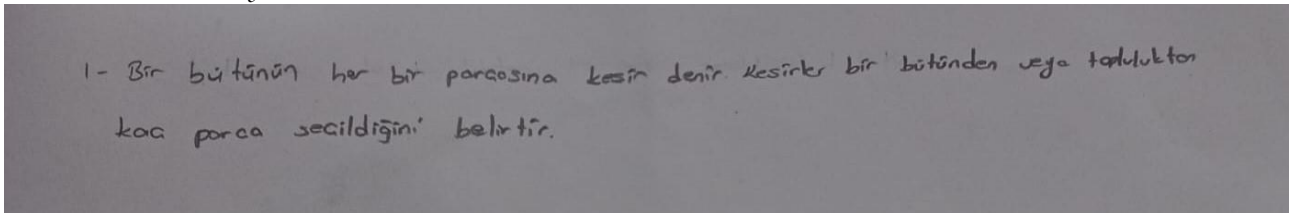 1- Bir bütünün her bir parçasına kesir denir Kesirler bir bütünden veya topluluktan
kaç parça seçildiğini belirtir.